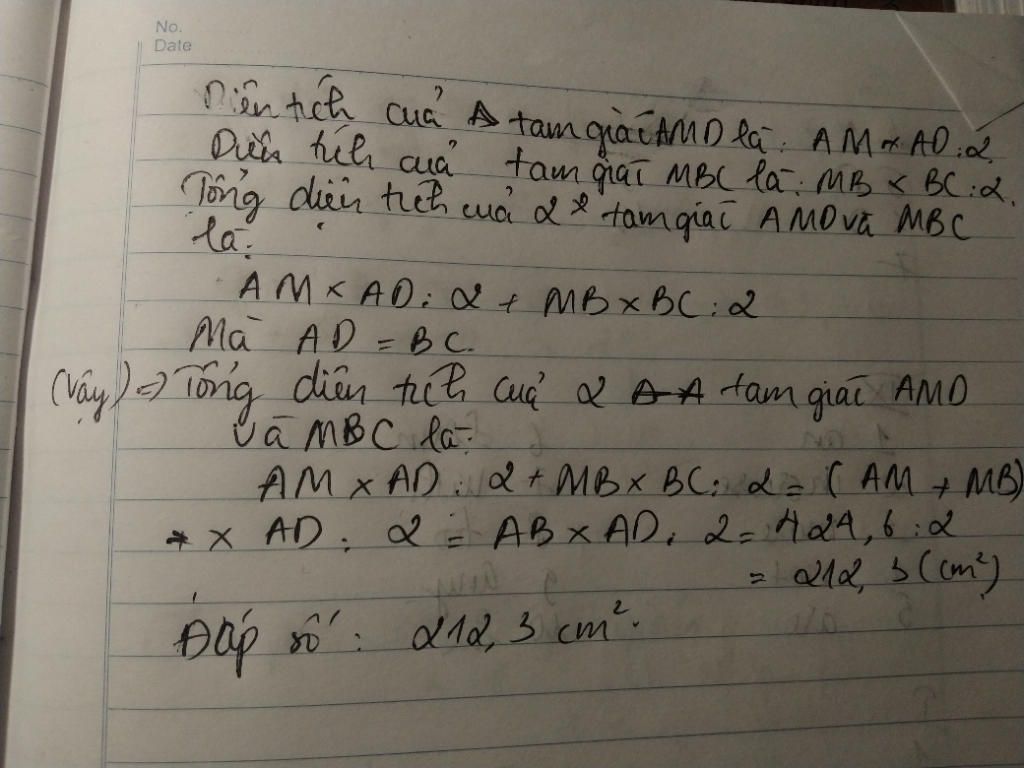 No.
Date
Diện tích cuả tam giác AMD là: AM x AD : 2
Diện tích cuả tam giác MBC là: MB x BC : 2.
Tổng diện tích cuả 2 tam giác AMD và MBC
là:
AM x AD : 2 + MB x BC : 2
Mà AD = BC.
(Vậy) => Tổng diện tích cuả 2 tam giác AMD
và MBC là:
AM x AD : 2 + MB x BC : 2 = (AM + MB)
x AD : 2 = AB x AD : 2 = 424,6 : 2
= 212,3 (cm²)
Đáp số : 212,3 cm².